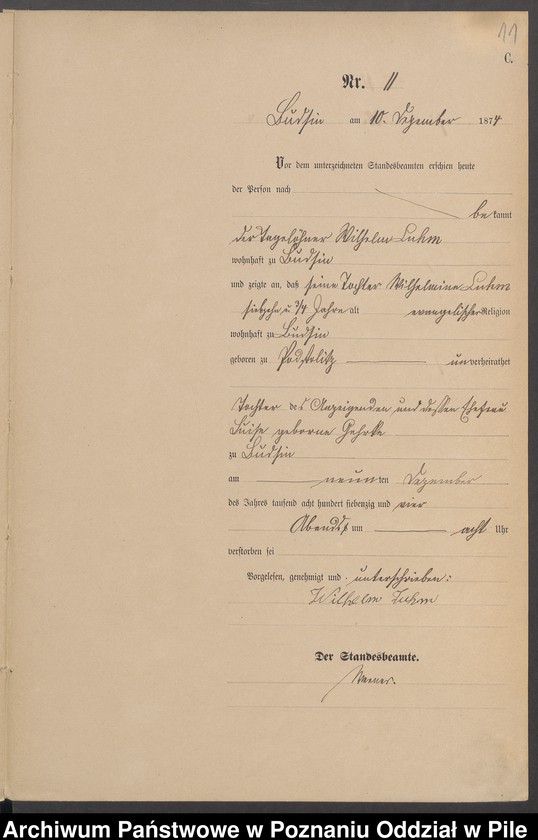 11
C.
Nr. 11
Budsin am 10. Dezember 1874
Vor dem unterzeichneten Standesbeamten erschien heute
der Person nach
bekannt
der Tagelöhner Wilhelm Luhm
wohnhaft zu Budsin
und zeigte an, daß seine Tochter Wilhelmine Luhm
siebzehn u. 3/4 Jahre alt evangelischer Religion
wohnhaft zu Budsin
geboren zu Podstolitz unverheirathet
Tochter des Anzeigenden und dessen Ehefrau
Luise geborne Gehrke
zu Budsin
am neunten Dezember
des Jahres tausend acht hundert siebenzig und vier
Abends um acht Uhr
verstorben sei
Vorgelesen, genehmigt und unterschrieben:
Wilhelm Luhm
Der Standesbeamte.
Werner.
Archiwum Państwowe w Poznaniu Oddział w Pile